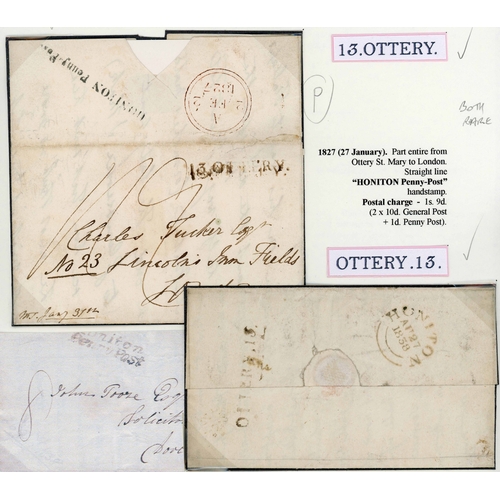 13.OTTERY.
P
BOTH
RARE
1827 (27 January). Part entire from
Ottery St. Mary to London.
Straight line
"HONITON Penny-Post"
handstamp.
Postal charge - 1s. 9d.
(2 x 10d. General Post
+ 1d. Penny Post).
OTTERY.13.
HONITON Penny-Post
A
FE
1827
13.OTTERY.
Charles Tucker Esqr
No 23 Lincoln's Inn Fields
Honiton
Penny Post
8
John Toore Esq
Solicitor
OTTERY.13.
HONITON
1830